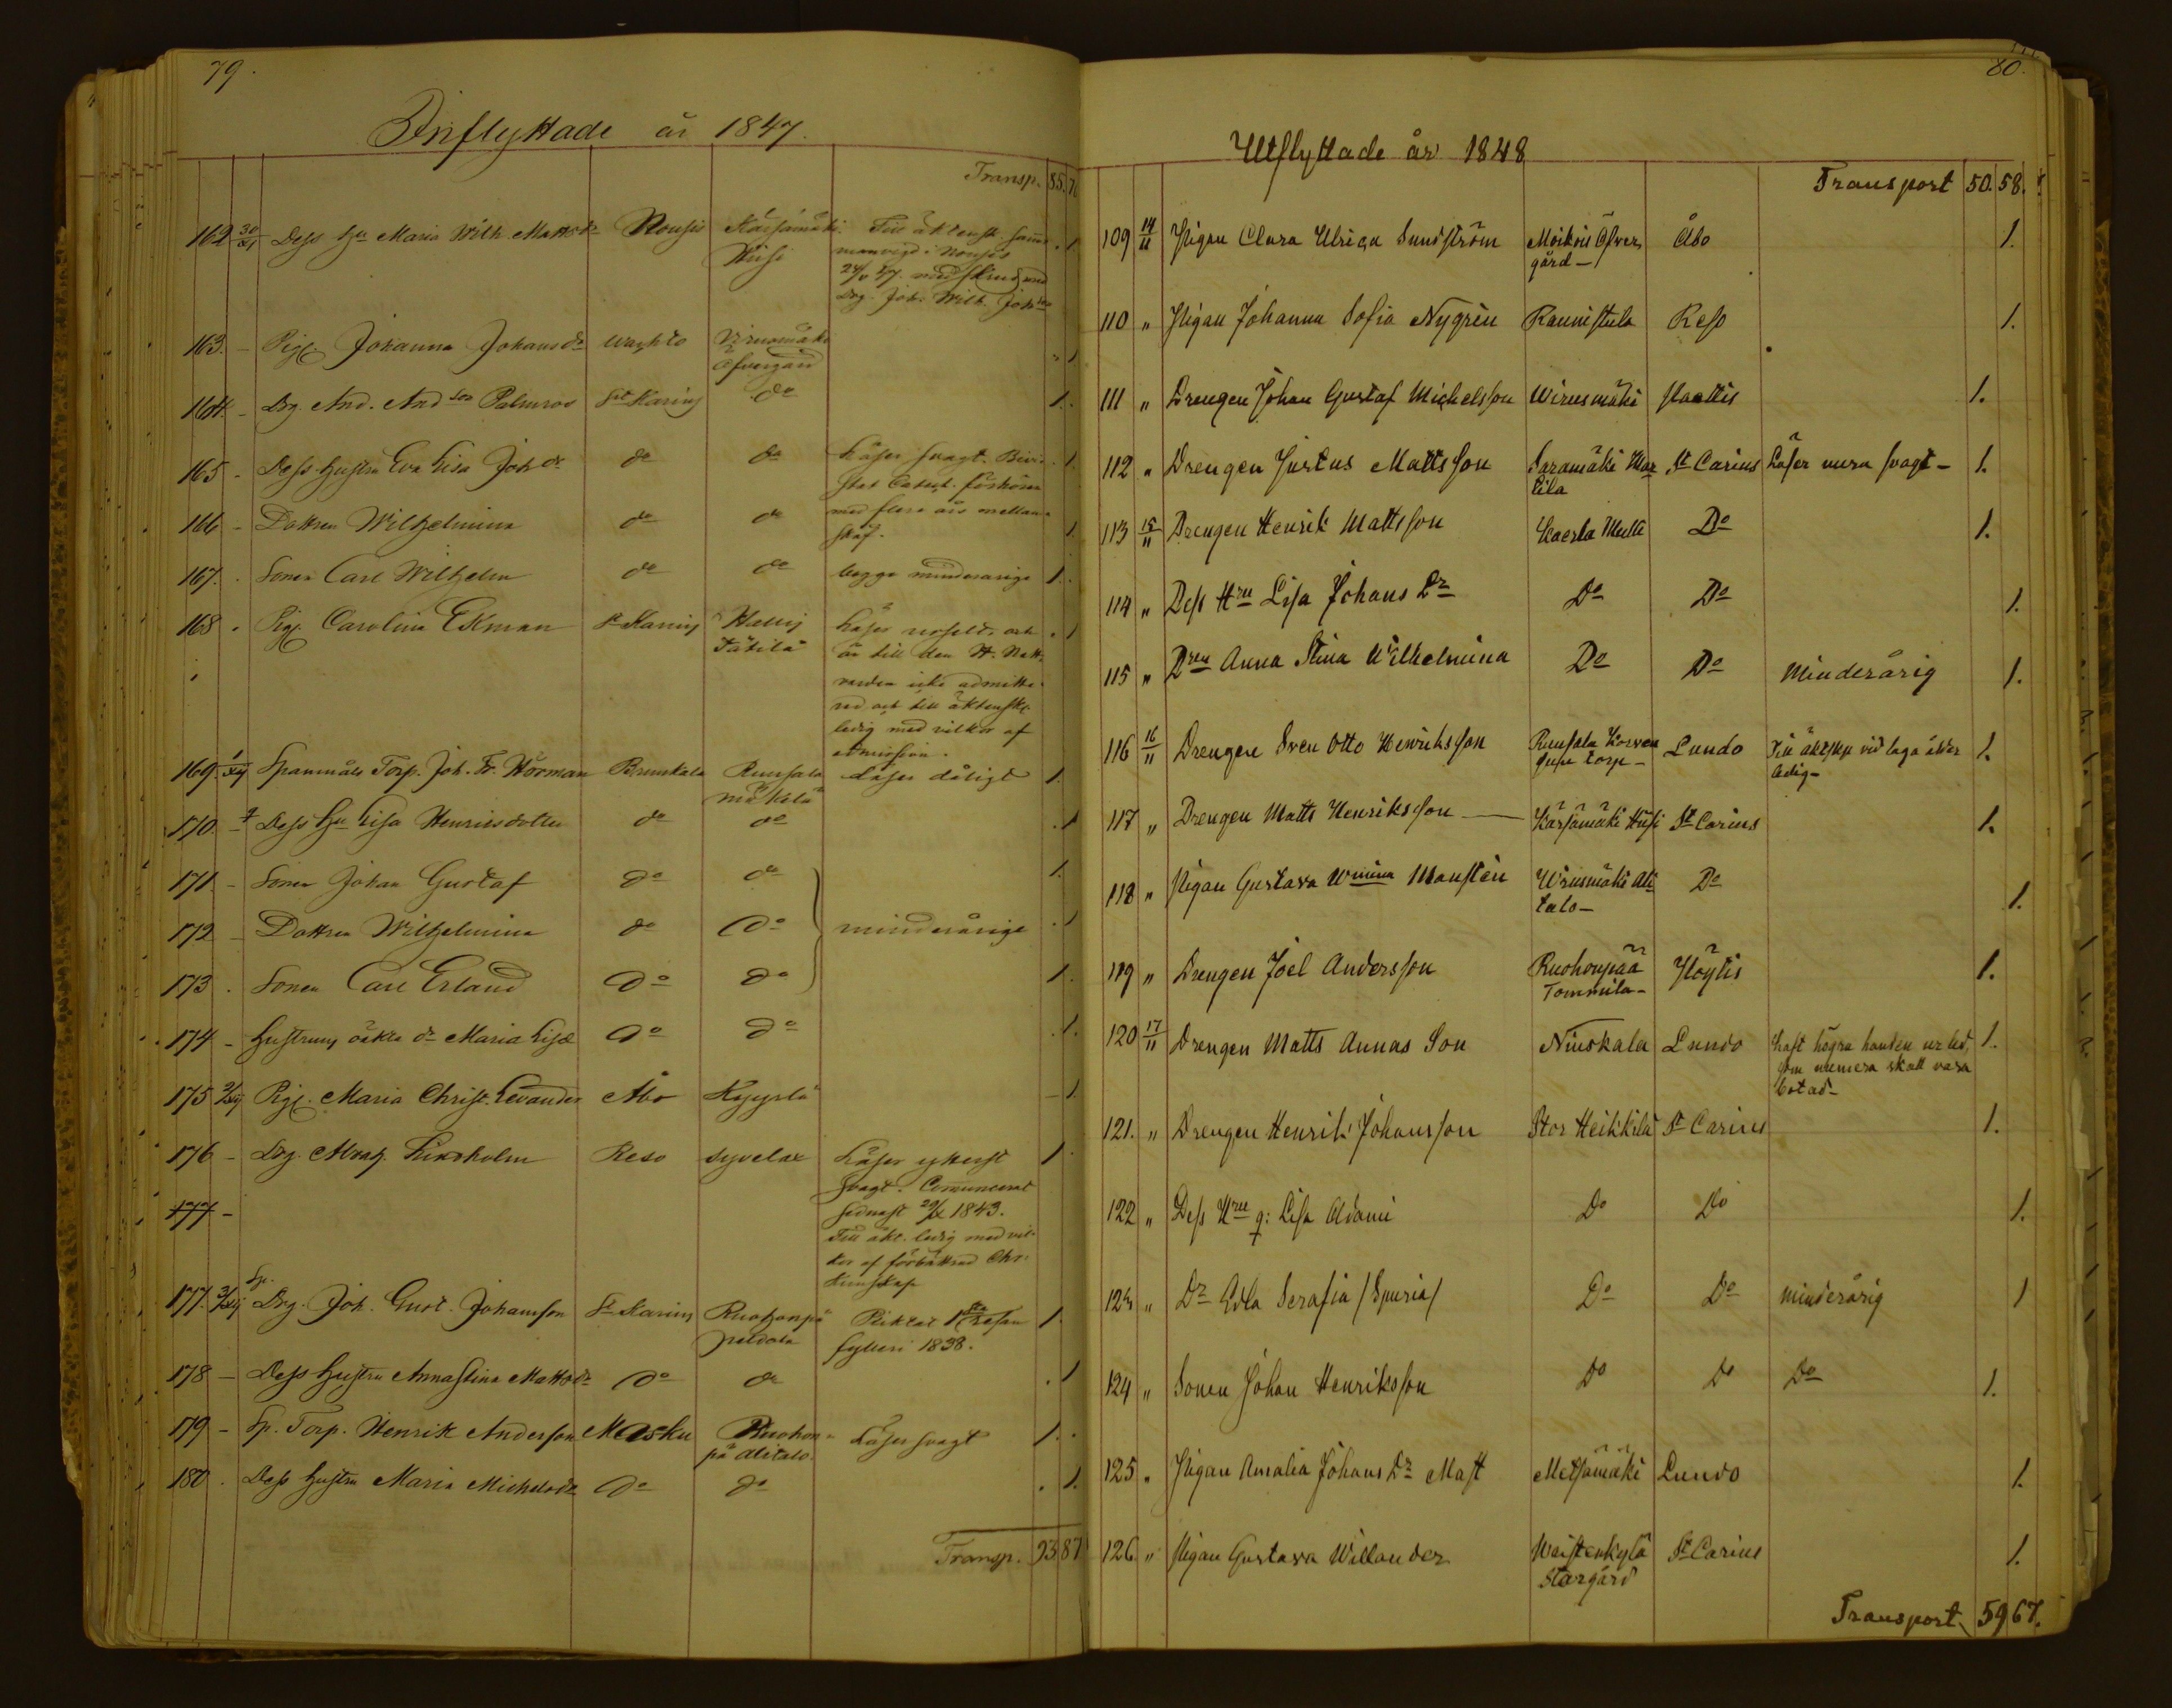 79.
Inflyttade år 1847.
Transp. 85. 76
162 30/XI Dess Hu Maria Wilh. Mattsdr Nousis Kärsämäki Till äktensk. sam-
Hüsi manvigd i Nousis
24/V 47. med
Drg. Joh. Wilh. Johsson 1
163. - Pig. Johanna Johansdr Wahto Virusmäki 1
Öfvergård
164 - Drg. And. Andson Palmros St Karins do 1.
165 - Dess hustru Eva Lisa Johdr do do Läser svagt. Bevi- 1
stat Catech. förhören
166 - Dottren Wilhelmina do do med flera års mellan- 1
skof.
167. Sonen Carl Wilhelm do do begge minderårige 1.
168. Pig. Carolina Ekman St Karins Hallis Läser och 1
Tätilä är till den H. Natt-
varden icke admitte-
rad och till äktensk.
ledig med vilkor af
admission.
169 1/XII Spanmåls Torp. Joh. Fr. Hörman Brunkala Runsala Läser dåligt 1.
mäkilä
170 - Dess Hu Lisa Henricsdotter do do 1
171 - Sonen Johan Gustaf do do 1.
172 - Dottren Wilhelmina do do minderårige 1
173. Sonen Carl Erland do do 1.
174 - Hustruns äkta dr Maria Lisa do do 1.
175 2/XII Pig. Maria Christ. Levander Åbo 1
176 - Drg. Abrah. Reso Syvelax Läser ytterst 1.
svagt. Communicerat
177 - sednast 29/X 1843.
Till äkt. ledig med vil-
kor af förbättrad Chr.
kunskap
Sp.
177. 3/XII Drg. Joh. Gust. Johansson St Karins Ruohonpä Pliktat 1sta resan 1.
peldola fylleri 1838.
178 - Dess hustru Annastina Mattsdr do do 1
179 - Sp. Torp. Henrik Anderson Masku Ruohon- Läser svagt 1.
pä alitalo.
180. Dess hustru Maria Michelsdr do do 1.
Transp. 93 87
80.
Utflyttade år 1848
Transport 50. 58.
109 14/11 Pigan Clara Ulrica Sundström Moikois Öfver Åbo 1.
gård -
110 " Pigan Johanna Sofia Nygrén Raunistula Reso 1.
111 " Drengen Johan Gustaf Michelsson Wirusmäki Paattis 1.
112 " Drengen Justus Mattsson Saramäki Mar St Carins Läser mera svagt - 1.
tila
113 15/11 Drengen Henrik Mattsson Kaerla Mulli Do 1.
114 " Dess Hru Lisa Johans Dr Do Do 1.
115 " Dren Anna Stina Wilhelmina Do Do Minderårig 1.
116 16/11 Drengen Sven Otto Henriksson Runsala Korven Lundo Till äktskp vid laga ålder 1.
torp - ledig -
117 " Drengen Matts Henriksson Kärsämäki Hüsi St Carins 1.
118 " Pigan Gustava Wmina Monstén Wirusmäki Ali Do 1.
talo -
119 " Drengen Joel Andersson Ruohonpää Pöytis 1.
Tommila -
120 17/11 Drengen Matts Annas Son Niuskala Lundo Haft högra handen ur led, 1.
som numera skall vara
botad -
121. " Drengen Henrik Johansson Stor Heikkilä St Carins 1.
122 " Dess Hru g: Lisa Adami Do Do 1.
123 " Dr Edla Serafia /Spuria/ Do Do minderårig 1
124 " Sonen Johan Henriksson Do Do Do 1.
125 " Pigan Amalia Johans Dr Mast Metsämäki Lundo 1.
126 " Pigan Gustava Willander Waistenkylä St Carins 1.
Storgård
Transport 59 67.